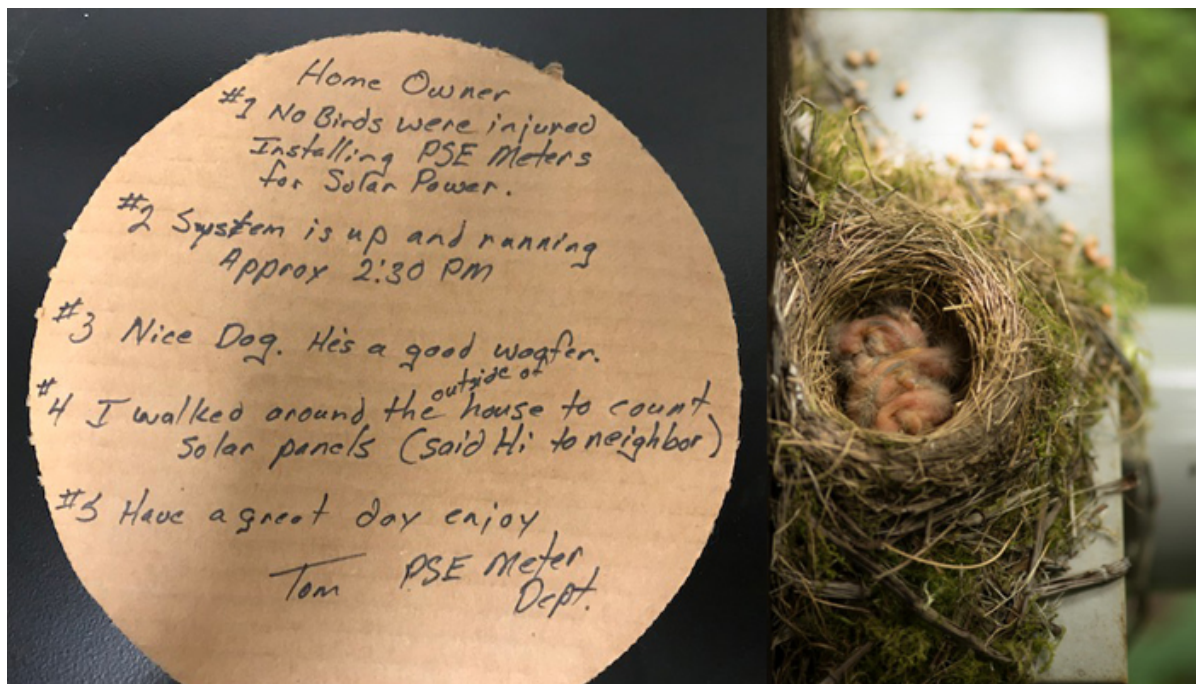 Home Owner
#1 No Birds were injured
Installing PSE Meters
for Solar Power.
#2 System is up and running
Approx 2:30 PM
#3 Nice Dog. He's a good woofer.
outside of
#4 I walked around the house to count
Solar panels (said Hi to neighbor)
#5 Have a great day enjoy
Tom PSE Meter
Dept.